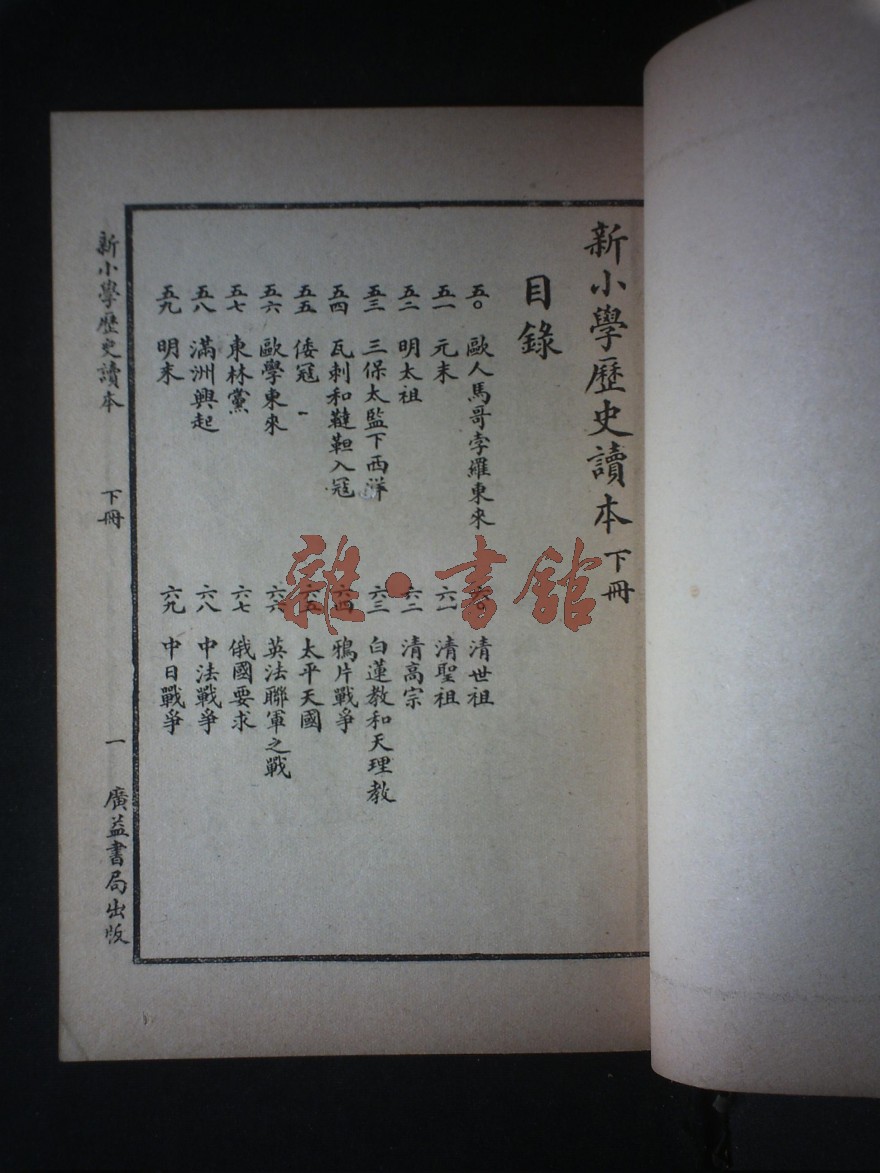 新小學歷史讀本 下冊
目錄
五〇 歐人馬哥孛羅東來
五一 元末
五二 明太祖
五三 三保太監下西洋
五四 瓦刺和韃靼入冦
五五 倭冦
五六 歐學東來
五七 東林黨
五八 滿洲興起
五九 明末
六〇 清世祖
六一 清聖祖
六二 清高宗
六三 白蓮教和天理教
六四 鴉片戰爭
六五 太平天國
六六 英法聯軍之戰
六七 俄國要求
六八 中法戰爭
六九 中日戰爭
新小學歷史讀本 下冊 一 廣益書局出版
雜·書館